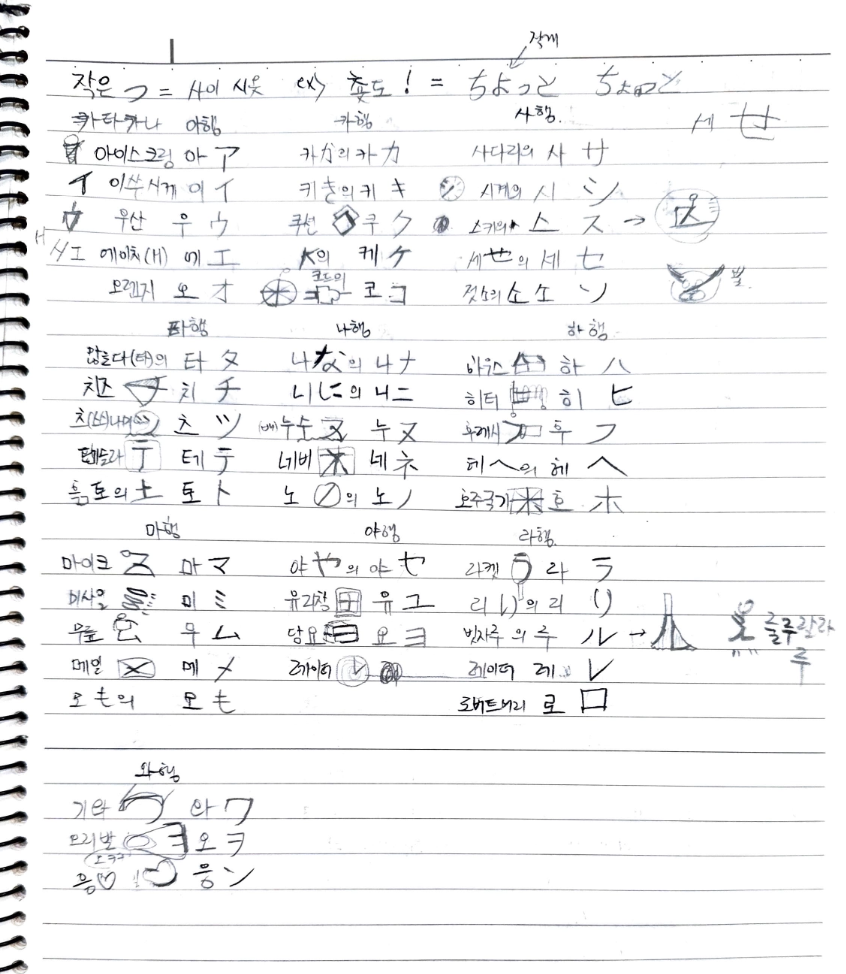 작게
작은 つ = 사이 시옷 ex) 춋도! = ちよっと ちょっと
카타카나 아행 카행 사행 세 せ
아이스크림 아 ア 카か의 카 カ 사다리의 사 サ
이쑤시개 이 イ 키き의 키 キ 시계의 시 シ
우산 우 ウ 쿠션 쿠 ク 스키의 스 ス →
エ 에이치(H) 에 エ K의 케 ケ 세せ의 세 セ
오렌지 오 オ 코드의 코 コ 젖소의 소 ソ 뿔
타행 나행 하행
많을다(타)의 타 タ 나な의 나 ナ 하우스 하 ハ
치즈 치 チ 니に의 니 ニ 히터 히 ヒ
츠 ツ 누 ヌ 후 フ
테 テ 네비 네 ネ 헤へ의 헤 ヘ
흙토의 土 토 ト 노 の의 노 ノ 호주국기 호 ホ
마행 야행 라행
마이크 마 マ 야や의 야 ヤ 라켓 라 ラ
미사일 미 ミ 유리창 유 ユ 리り의 리 リ
무릎 무 ム 담요 요 ヨ 빗자루의 루 ル → 룰루랄라
메일 메 メ 레이더 레이더 레 レ 루
모も의 모 も 로 ロ
와행
기와 와 ワ
오리발 오 ヲ
응♡ 응 ン